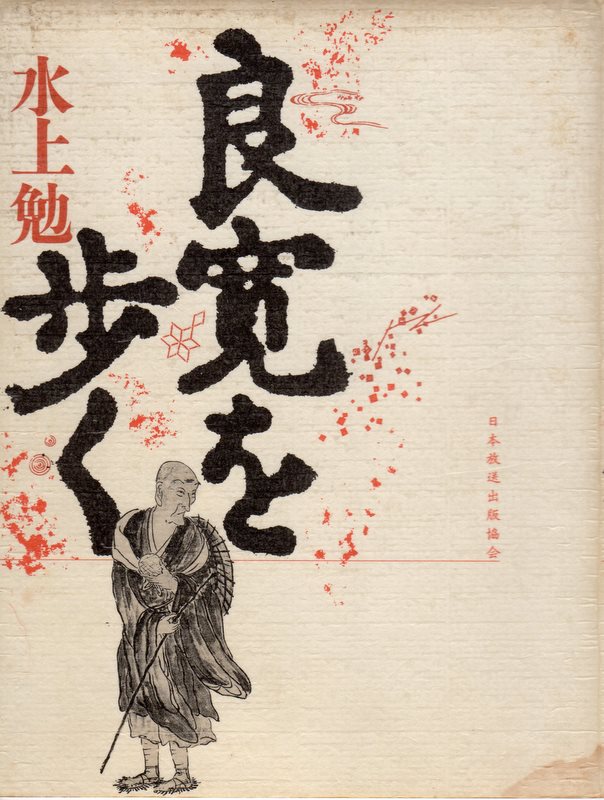 良寛を
歩く
水上勉
日本放送出版協会